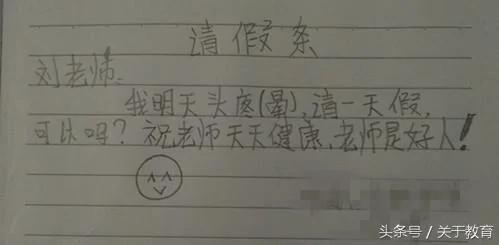 请假条
刘老师、
我明天头疼(晕),请一天假,
可以吗?祝老师天天健康、老师是好人!
头条号/关于教育